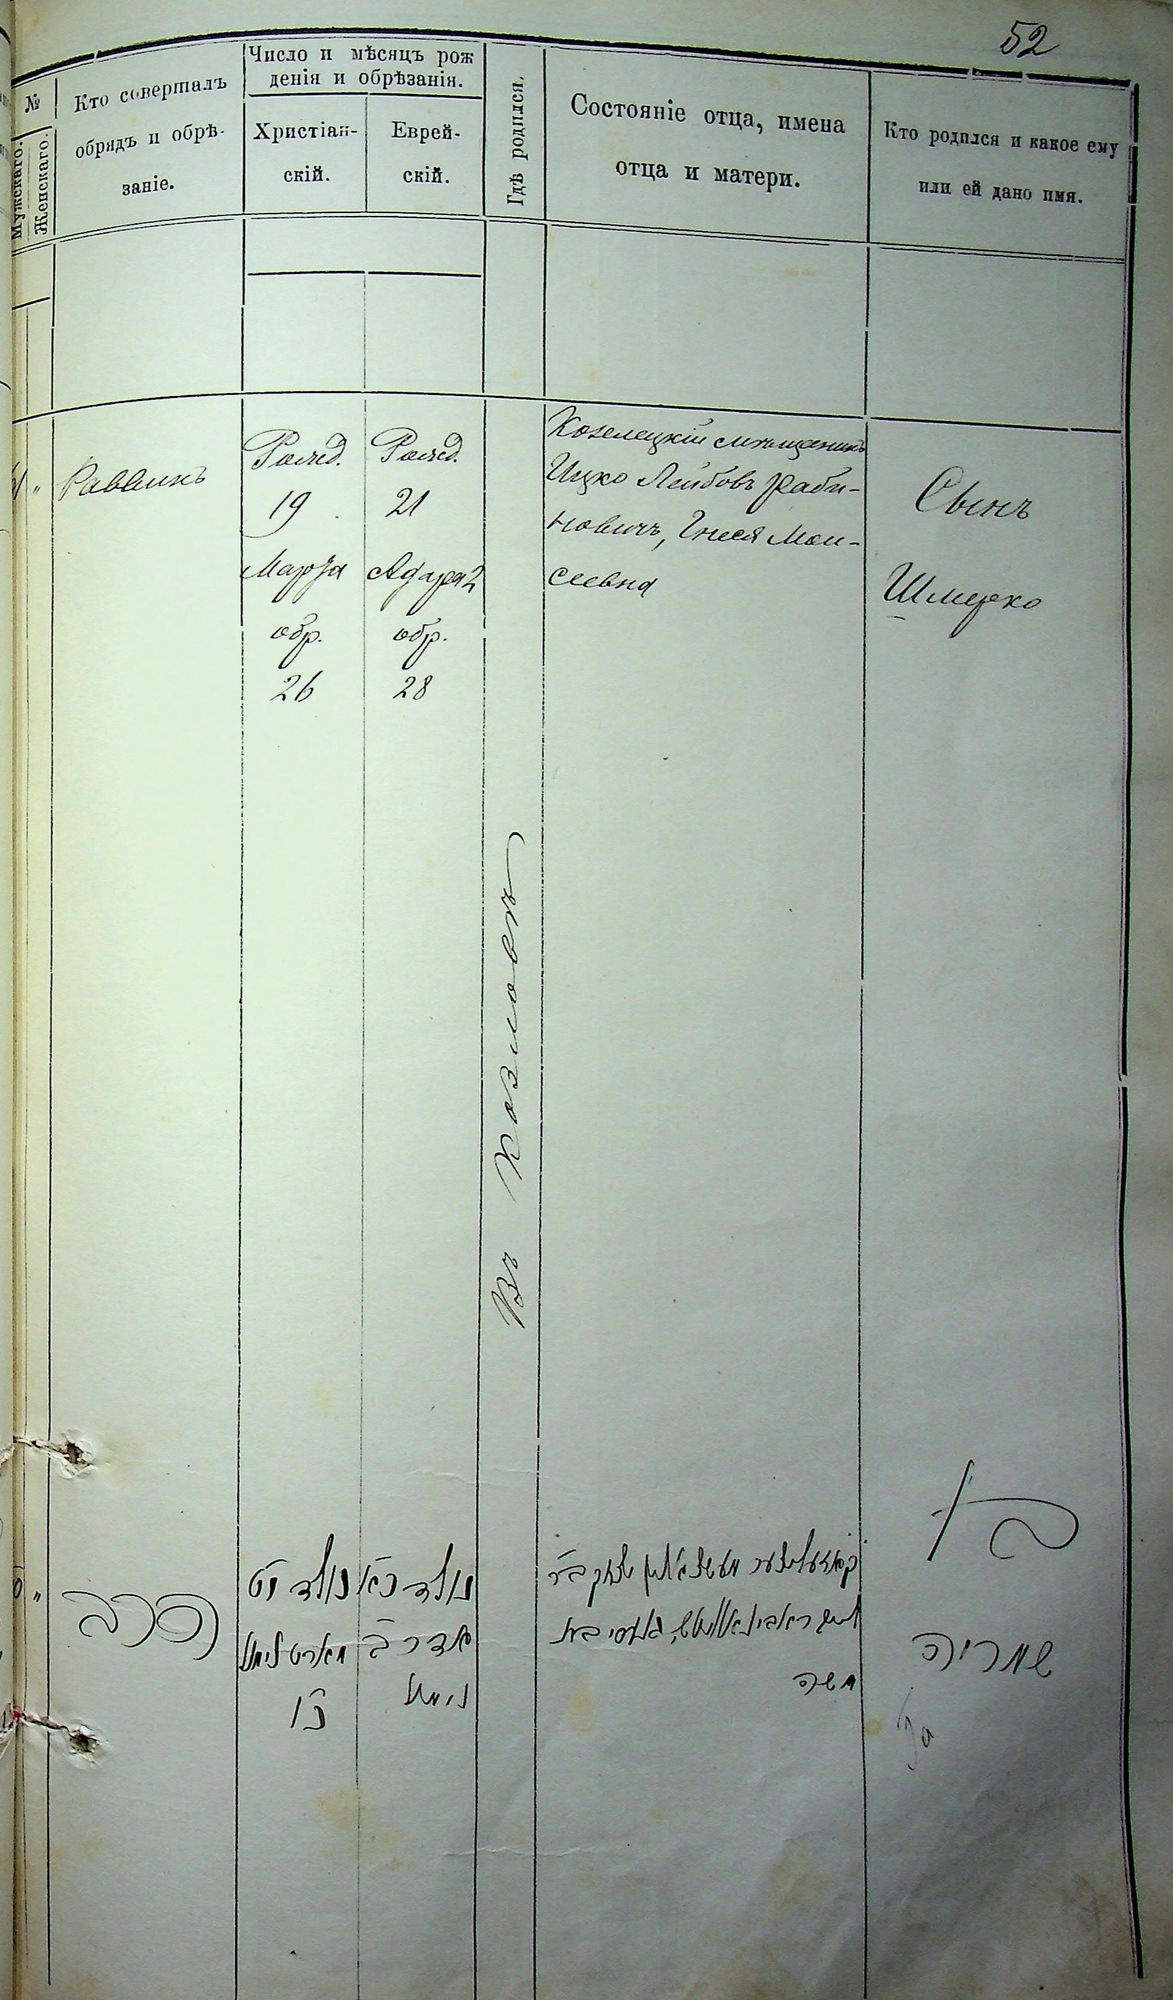 52
№
Мужскаго.
Женскаго.
Кто совершалъ
обрядъ и обрѣ-
заніе.
Число и мѣсяцъ рож
денія и обрѣзанія.
Христіан-
скій.
Еврей-
скій.
Гдѣ родился.
Состояніе отца, имена
отца и матери.
Кто родился и какое ему
или ей дано имя.
"
Раввинъ
Рожд.
19
Марта
обр.
26
Рожд.
21
Адара 2
обр.
28
Въ Козловѣ
Козелецкій мѣщанинъ
Ицко Лейбовъ Раби-
новичъ, Гнеся Мои-
сеевна
Сынъ
Шмерко
"
הרב
נולד י״ט
מארט נימול
כ״ו
נולד כ״א
אדר ב׳
נימול
יצחק ב״ר
ראבינאוויטש, בת
משה
בן
שמריה